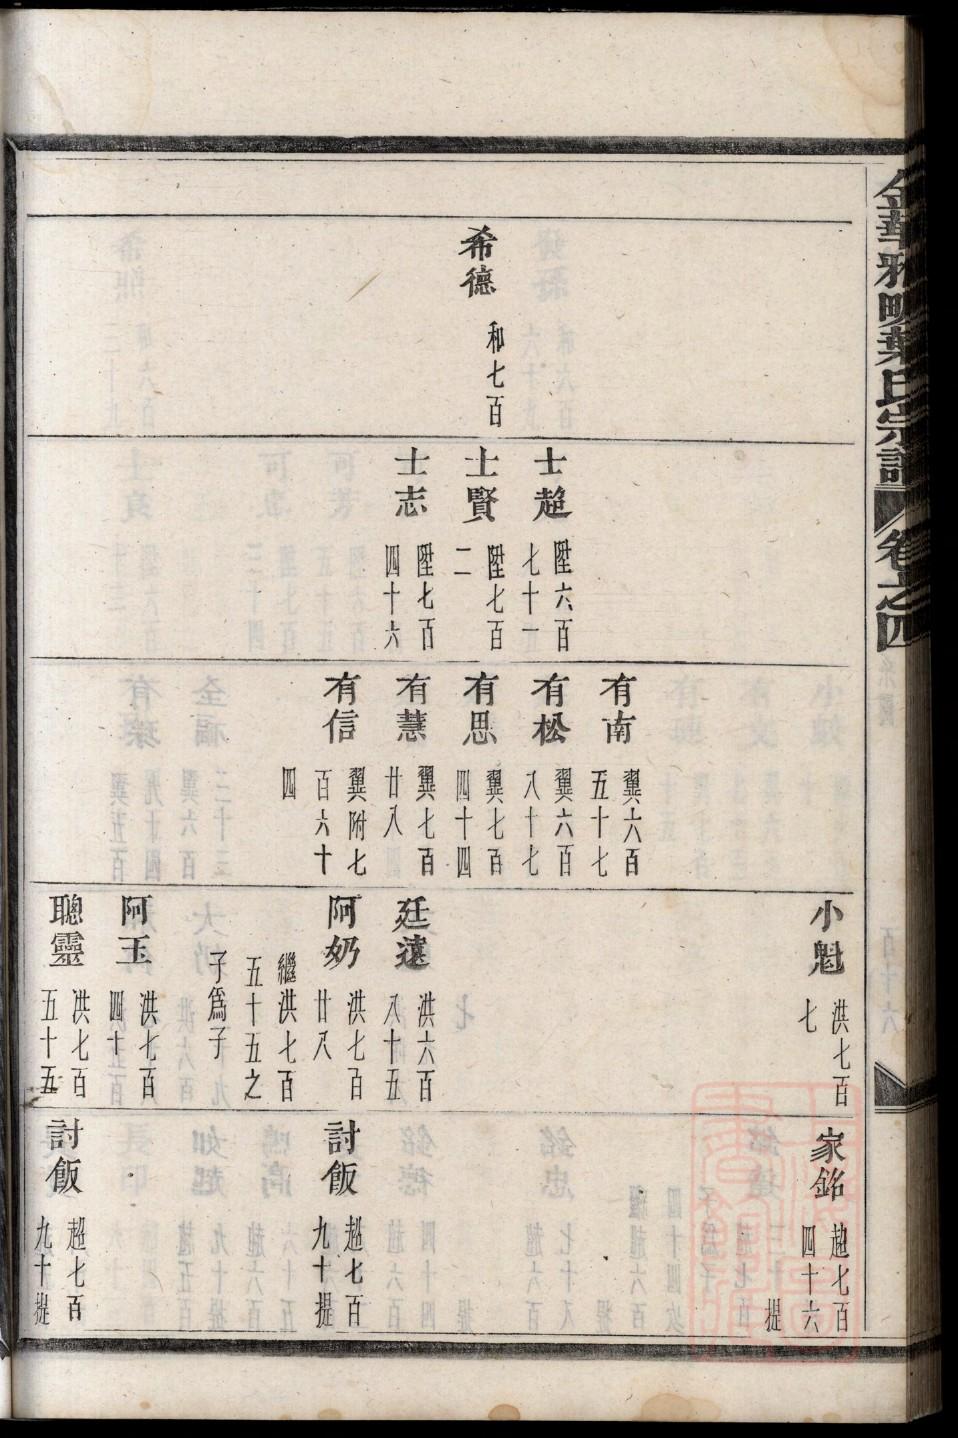 金華雅畈葉氏宗譜
卷之四
希德
和七百
士超
陞六百
七十一
士賢
陞七百
二
士志
陞七百
四十六
有南
翼六百
五十七
有松
翼六百
八十七
有思
翼七百
四十四
有慧
翼七百
廿八
有信
翼附七
百六十
四
小魁
洪七百
七
廷遠
洪六百
八十五
阿奶
洪七百
廿八
繼洪七百
五十五之
子為子
阿玉
洪七百
四十
聰靈
洪七百
五十五
家銘
趙七百
四十六
提
討飯
趙七百
九十提
討飯
趙七百
九十提